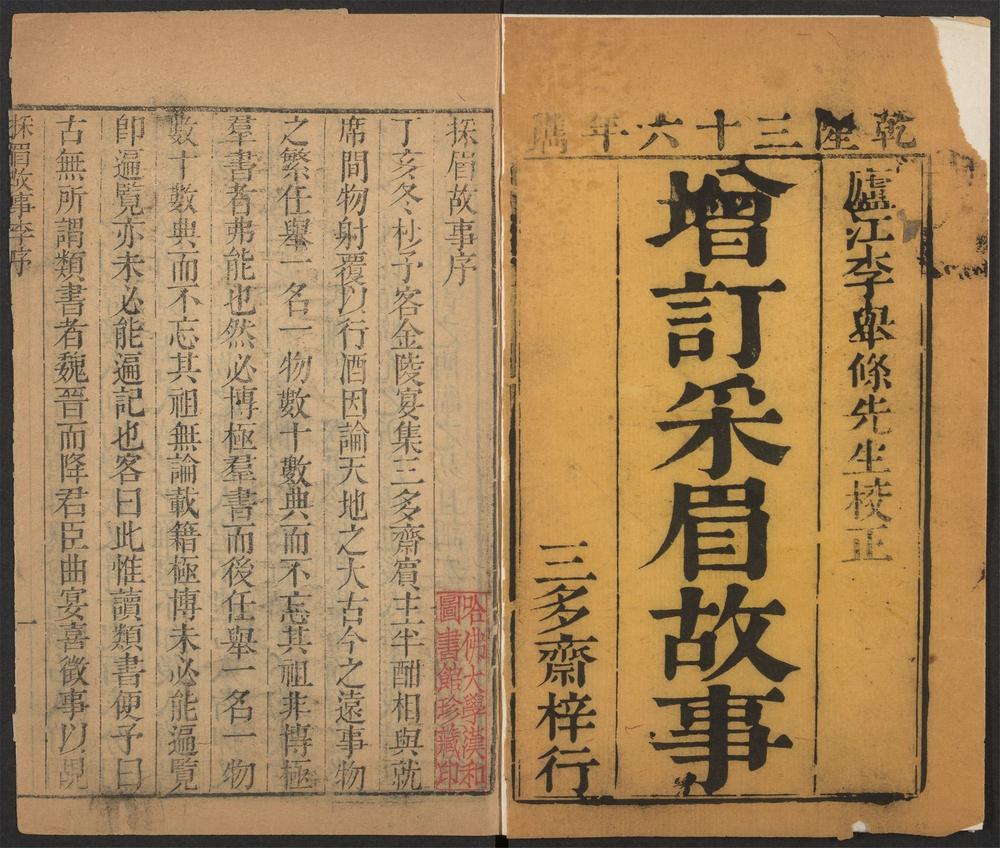 乾隆三十六年鐫
廬江李條先生校正
增訂采眉故事
三多齋梓行
採眉故事序
丁亥冬杪予客金陵宴集三多齋賓主半酣相與就
席間物射覆以行酒因論天地之大古今之遠事物
之繁任舉一名一物數十數典而不忘其祖非博極
羣書者弗能也然必博極羣書而後任舉一名一物
數十數典而不忘其祖無論載籍極博未必能遍覽
卽遍覽亦未必能遍記也客曰此惟讀類書便予曰
古無所謂類書者魏晉而降君臣曲宴喜徵事以覘
採眉故事李序
一
哈佛大學漢和
圖書館珍藏印